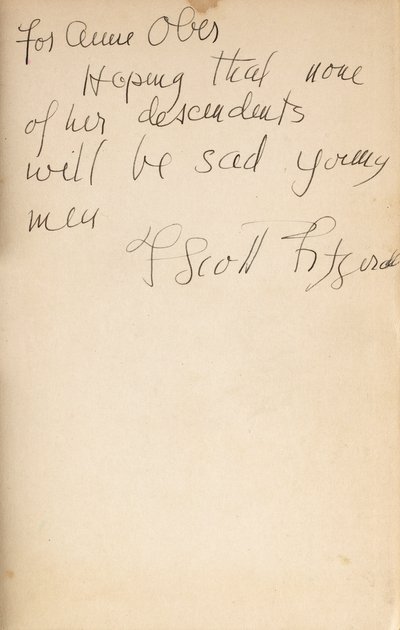 For Anne Ober
Hoping that none
of her descendents
will be sad young
men
F Scott Fitzgerald